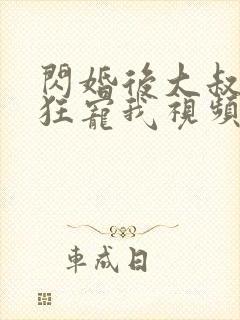 閃婚後大叔
狂寵我視頻
車成日